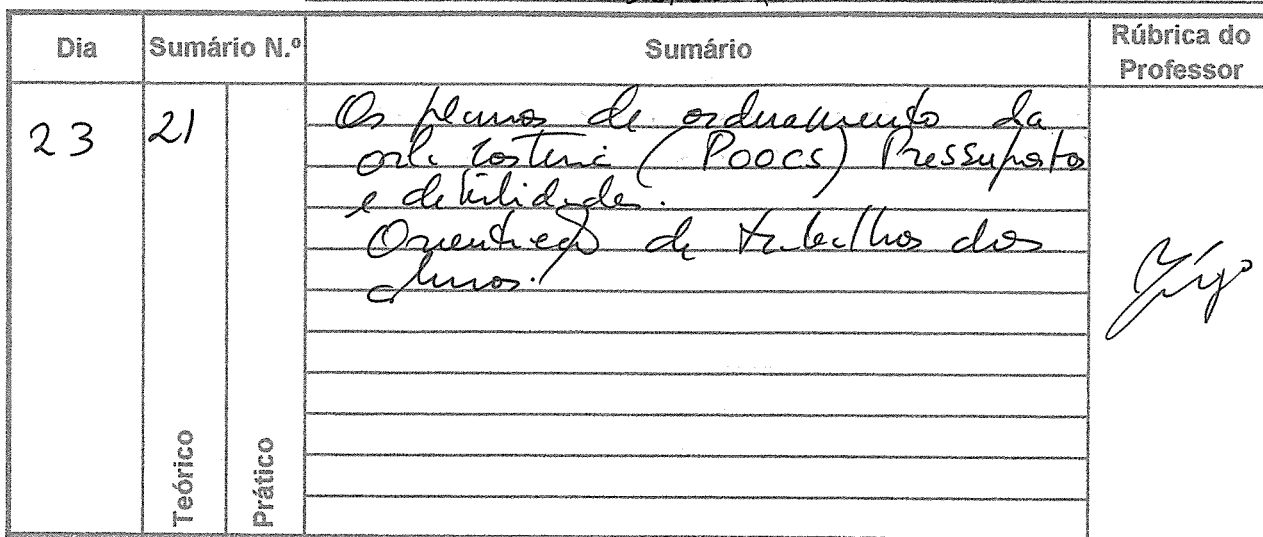 Dia Sumário N.º Sumário Rúbrica do Professor
23 21 Os planos de ordenamento da
orla costeira (POOCS) Pressupostos
e debilidades.
Orientação de trabalhos dos
alunos.
Teórico Prático